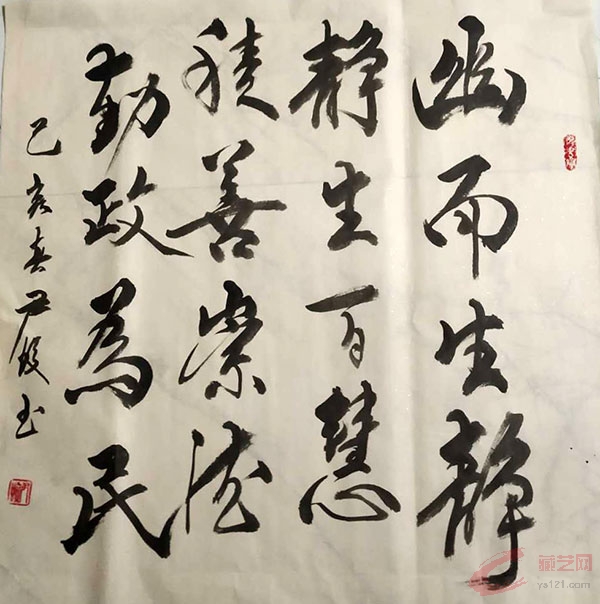 幽而生静
静生百慧
积善崇德
勤政為民
己亥春尹俊书
藏艺网
ys121.com